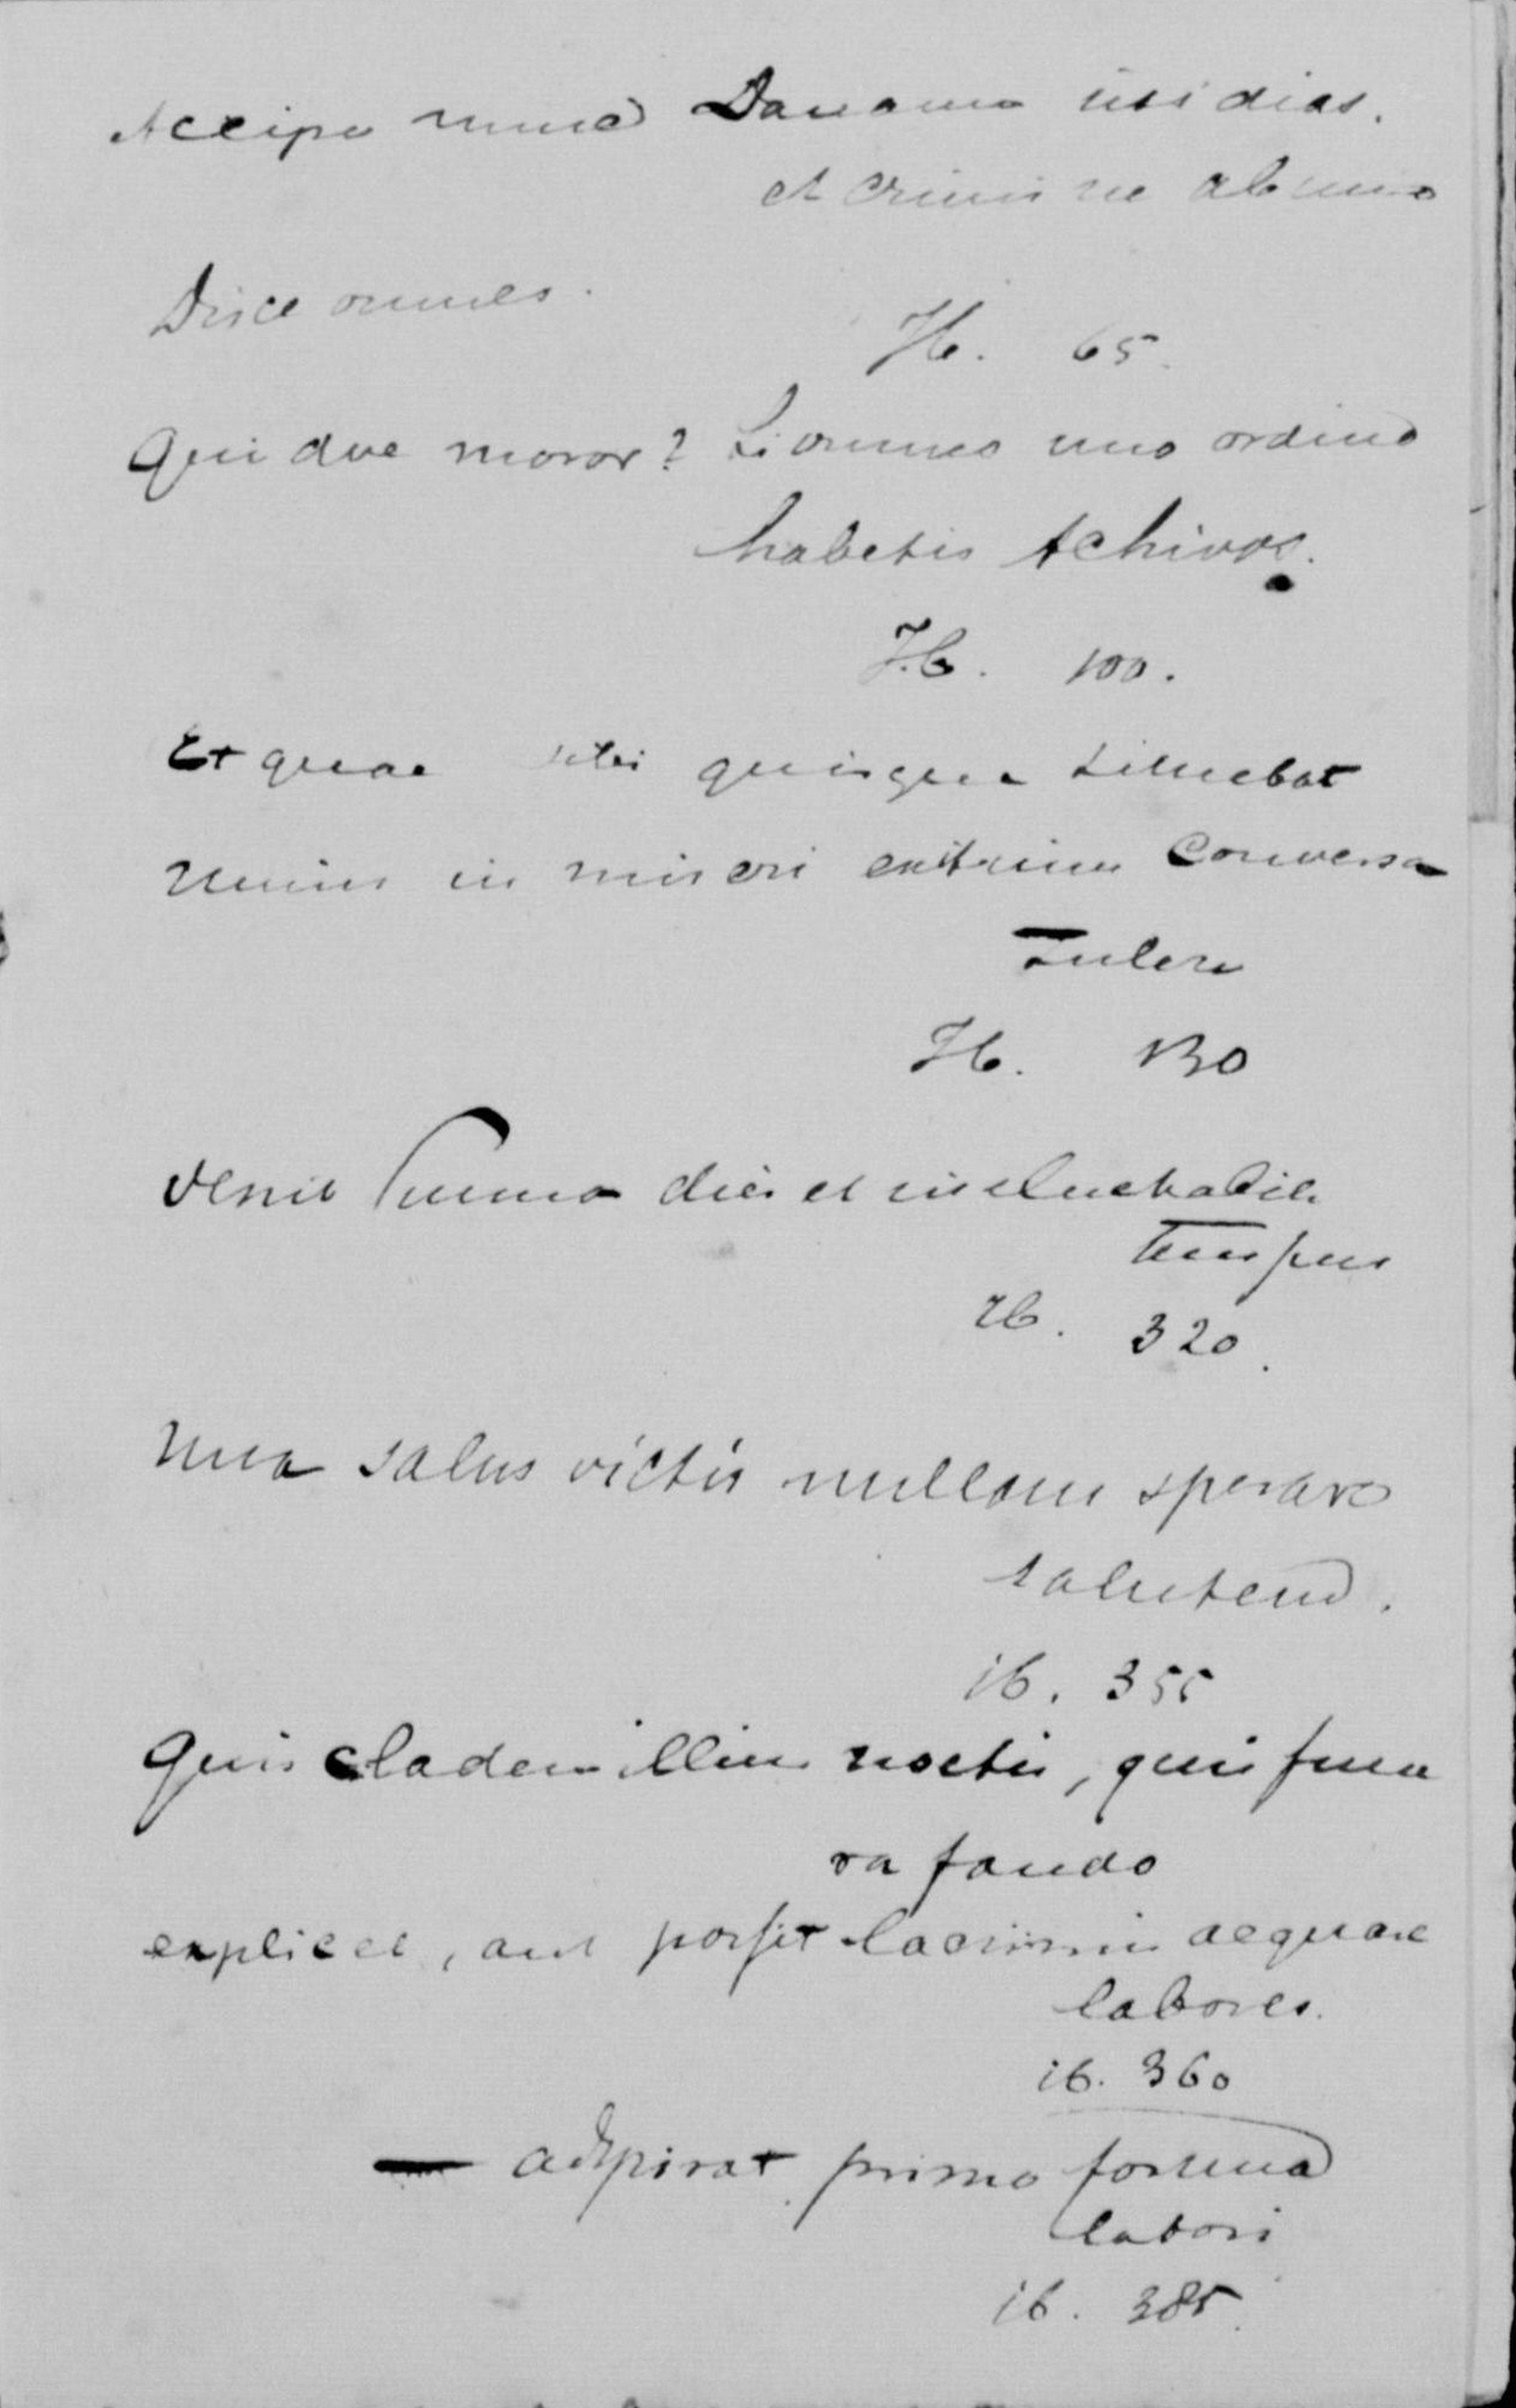 Accipe nunc Danaum insidias.
et crimine ab uno
Disce omnes.
Ib. 65.
Quidve moror? Si omnes uno ordine
habetis Achivos.
Ib. 100.
Et quae sibi quisque timebat
Unius in miseri exitium conversa
Tulere
Ib. 130
Venit summa dies et ineluctabile
Tempus
Ib. 320.
Una salus victis nullam sperare
salutem.
ib. 355
Quis cladem illius noctis, quis fune
ra fando
explicet, aut possit lacrimis aequare
labores.
ib. 360
— adspirat primo fortuna
labori
ib. 385.